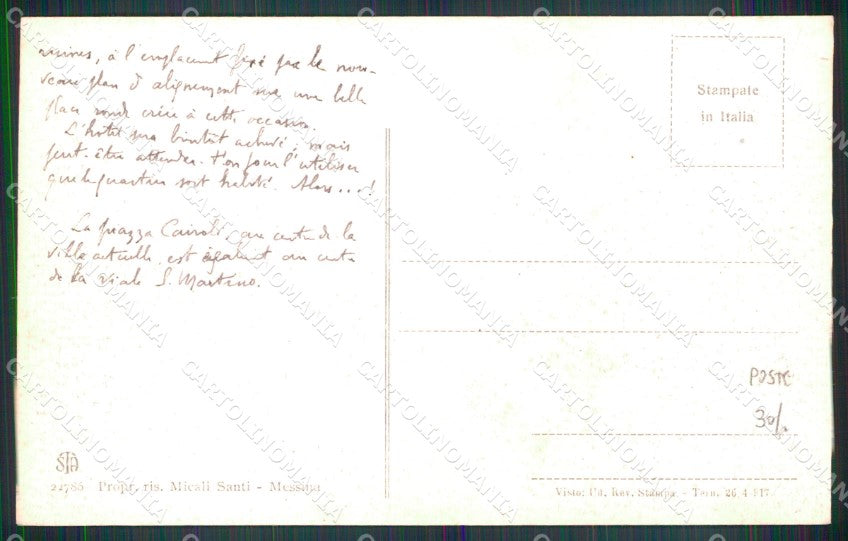 ruines, à l'emplacement fixé par le nou-
veau plan d'alignement sur une belle
place ronde créée à cette occasion.
L'hôtel sera bientôt achevé; mais
peut-être attendra-t'on pour l'utiliser
que le quartier soit habité. Alors...!
La piazza Cairoli, au centre de la
ville actuelle, est également au centre
de la viale S. Martino.
Stampate
in Italia
POSTE
30/.
STA
22785 Propr. ris. Micali Santi - Messina
Visto: Uff. Rev. Stampa - Tern. 26 4 917
CARTOLINOMANIA